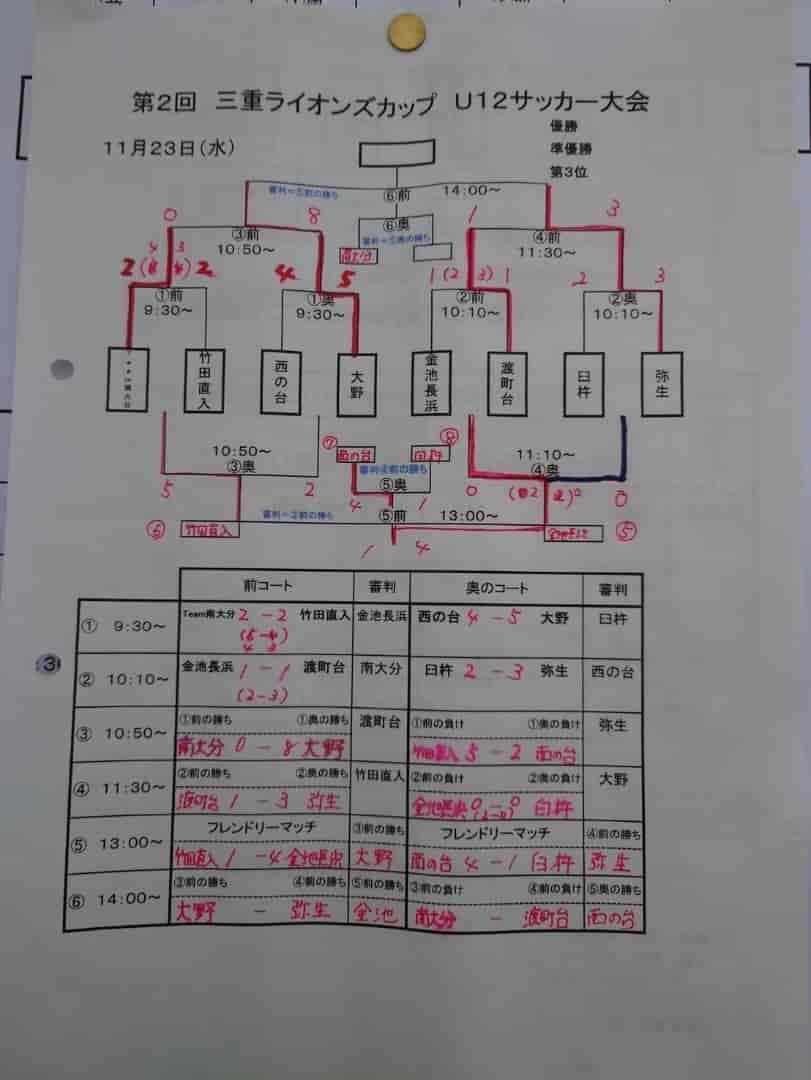 第2回 三重ライオンズカップ U12サッカー大会
優勝
11月23日(水)
準優勝
第3位
審判=⑤前の勝ち
⑥前
14:00~
0 8 1 3
③前
10:50~
⑥奥
審判=⑤奥の勝ち
④前
11:30~
南大分
4 3
2 2 4 5 1 (2 3) 1 2 3
①前
9:30~
①奥
9:30~
②前
10:10~
②奥
10:10~
竹田直入
西の台
大野
金池長浜
渡町台
臼杵
弥生
10:50~
③奥
⑦ 西の台
臼杵 ⑧
11:10~
④奥
審判④前の勝ち
⑤奥
5 2 4 1 0 0
審判=②前の勝ち
⑤前
13:00~
⑥ 竹田直入
⑤
1 4
前コート 審判 奥のコート 審判
① 9:30~ Team南大分 2-2 竹田直入 金池長浜 西の台 4-5 大野 臼杵
(5-4)
4 3
② 10:10~ 金池長浜 1-1 渡町台 南大分 臼杵 2-3 弥生 西の台
(2-3)
③ 10:50~ ①前の勝ち ①奥の勝ち 渡町台 ①前の負け ①奥の負け 弥生
南大分 0-8 大野 竹田直入 5-2 西の台
④ 11:30~ ②前の勝ち ②奥の勝ち 竹田直入 ②前の負け ②奥の負け 大野
渡町台 1-3 弥生 金池長浜 0-0 臼杵
⑤ 13:00~ フレンドリーマッチ ③前の勝ち フレンドリーマッチ ④前の勝ち
竹田直入 1-4 金池長浜 大野 西の台 4-1 臼杵 弥生
⑥ 14:00~ ③前の勝ち ④前の勝ち ⑤前の勝ち ③前の負け ④前の負け ⑤奥の勝ち
大野 - 弥生 金池 南大分 - 渡町台 西の台
③